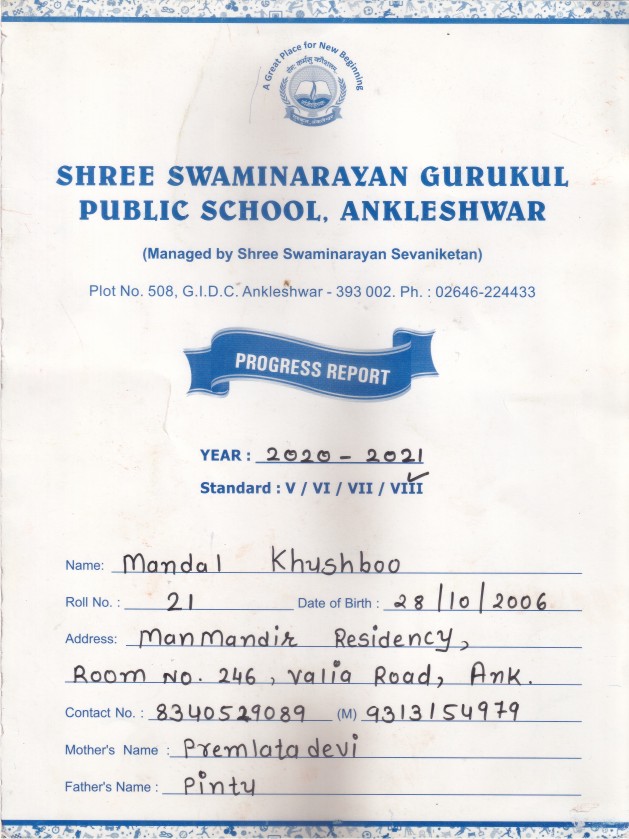 A Great Place for New Beginning
SHREE SWAMINARAYAN GURUKUL
PUBLIC SCHOOL, ANKLESHWAR
(Managed by Shree Swaminarayan Sevaniketan)
Plot No. 508, G.I.D.C. Ankleshwar - 393 002. Ph. : 02646-224433
PROGRESS REPORT
YEAR : 2020 - 2021
Standard : V / VI / VII / VIII
Name: Mandal Khushboo
Roll No. : 21 Date of Birth : 28/10/2006
Address: ManMandir Residency,
Room No. 246, Valia Road, Ank.
Contact No. : 8340529089 (M) 9313154979
Mother's Name : Premlata devi
Father's Name : Pinty